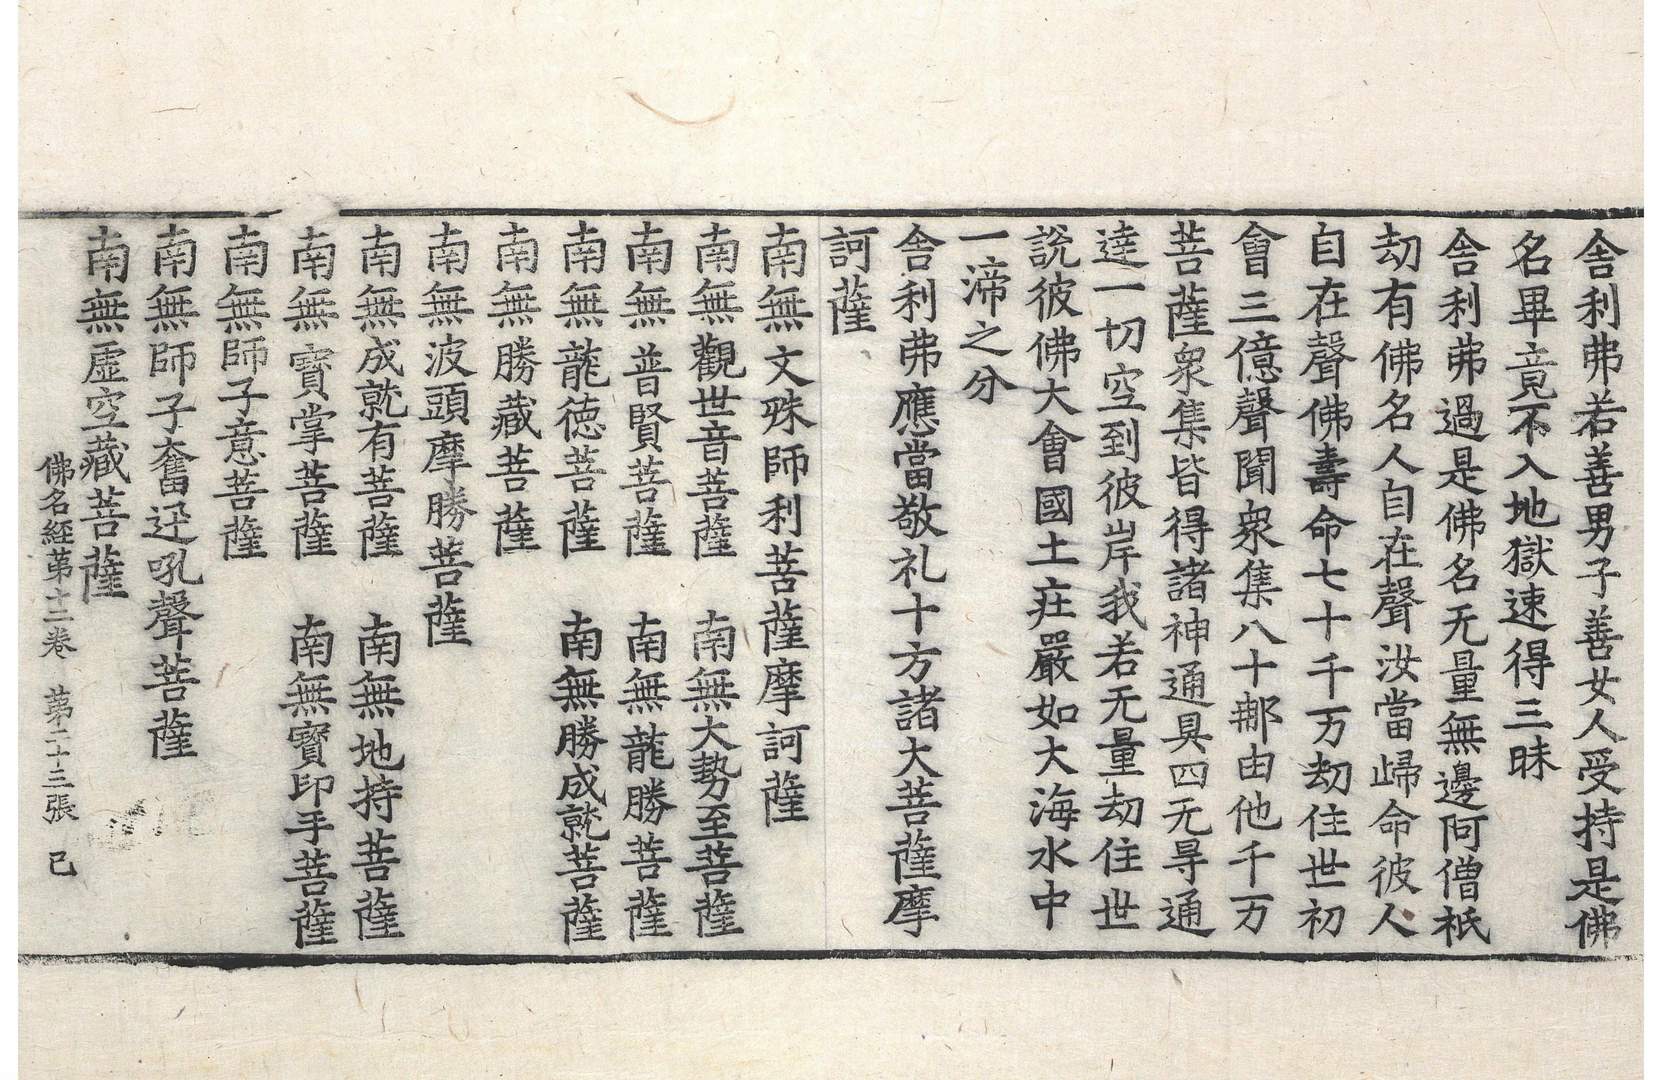 舎利弗若善男子善女人受持是佛
名畢竟不入地獄速得三昧
舎利弗過是佛名无量無邊阿僧祇
劫有佛名人自在聲汝當歸命彼人
自在聲佛壽命七十千万劫住世初
會三億聲聞衆集八十那由他千万
菩薩衆集皆得諸神通具四无㝵通
達一切空到彼岸我若无量劫住世
說彼佛大會國土荘嚴如大海水中
一渧之分
舎利弗應當敬礼十方諸大菩薩摩
訶薩
南無文殊師利菩薩摩訶薩
南無觀世音菩薩 南無大勢至菩薩
南無普賢菩薩 南無龍勝菩薩
南無龍德菩薩 南無勝成就菩薩
南無勝藏菩薩
南無波頭摩勝菩薩
南無成就有菩薩 南無地持菩薩
南無寳掌菩薩 南無寳印手菩薩
南無師子意菩薩
南無師子奮迅吼聲菩薩
南無虛空藏菩薩
佛名經苐十二卷 苐二十三張 已